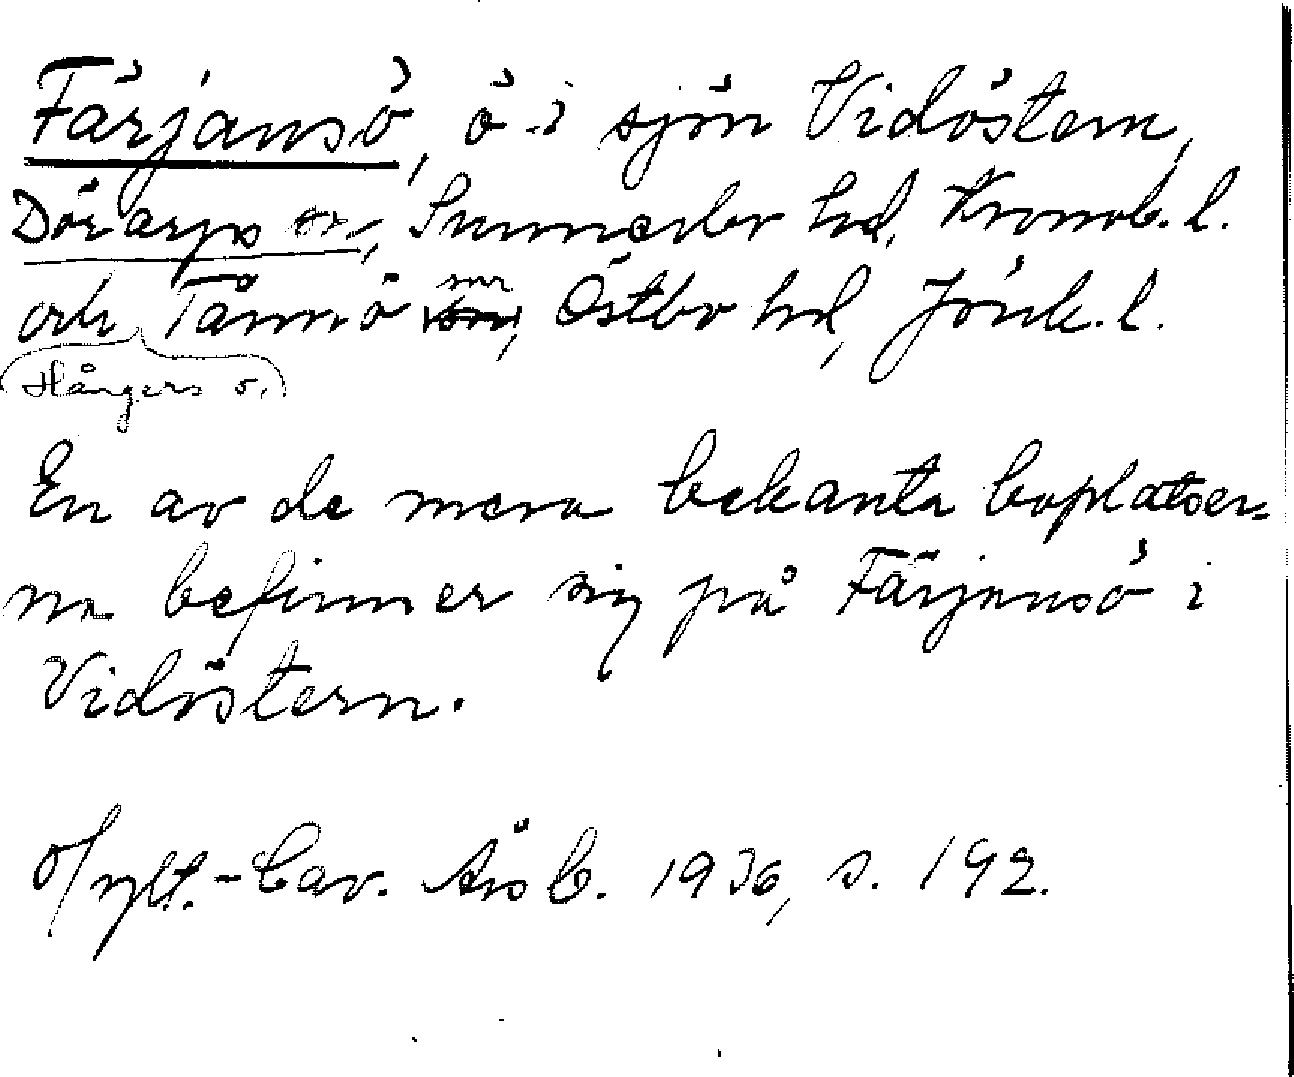 Färjansö, ö i sjön Vidöstern,
Dörarps sn, Sunnerbo hd, Kronob. l.
och Tånnö snr, Östbo hd, Jönk. l.
Hångers o.
En av de mera bekanta boplatser=
na befinner sig på Färjansö i
Vidöstern.
Hylt.-Cav. Årsb. 1936, s. 192.